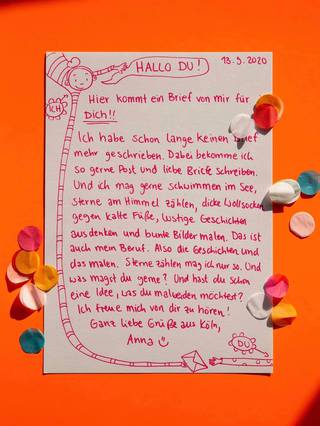 HALLO DU!
13.9.2020
ICH
Hier kommt ein Brief von mir für
Dich!!
Ich habe schon lange keinen Brief
mehr geschrieben. Dabei bekomme ich
so gerne Post und liebe Briefe schreiben.
Und ich mag gerne schwimmen im See,
Sterne am Himmel zählen, dicke Wollsocken
gegen kalte Füße, lustige Geschichten
ausdenken und bunte Bilder malen. Das ist
auch mein Beruf. Also die Geschichten und
das malen. Sterne zählen mag ich nur so. Und
was magst du gerne? Und hast du schon
eine Idee, was du malwerden möchtest?
Ich freue mich von dir zu hören!
Ganz liebe Grüße aus Köln,
Anna
DU